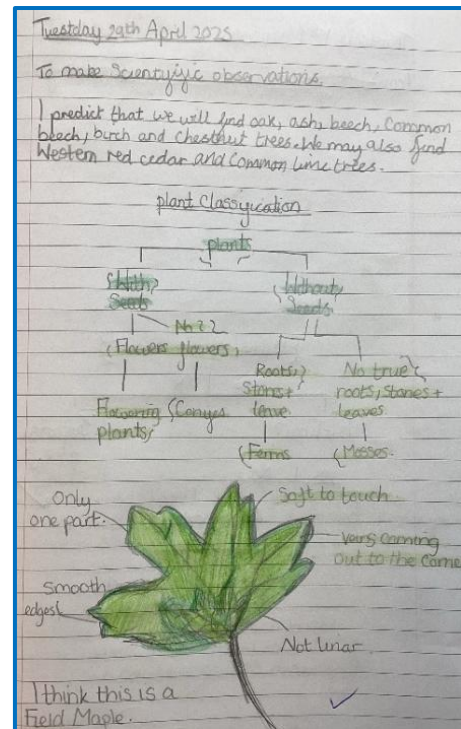 Tuestday 29th April 2025
To make Scientyific observations.
I predict that we will find oak, ash, beech, Common
beech, birch and Chestnut trees. We may also find
Western red cedar and Common lime trees.
plant Classyication
plants
With Seeds
Without Seeds
No
Flowers flowers
Flowering plants
Conyes
Roots,
Stones +
leave
No true
roots, Stones +
leaves
Ferns
Mosses.
Only
one part.
Soft to touch
veins coming
out to the corne
Smooth
edges
Not liniar
I think this is a
Field Maple.